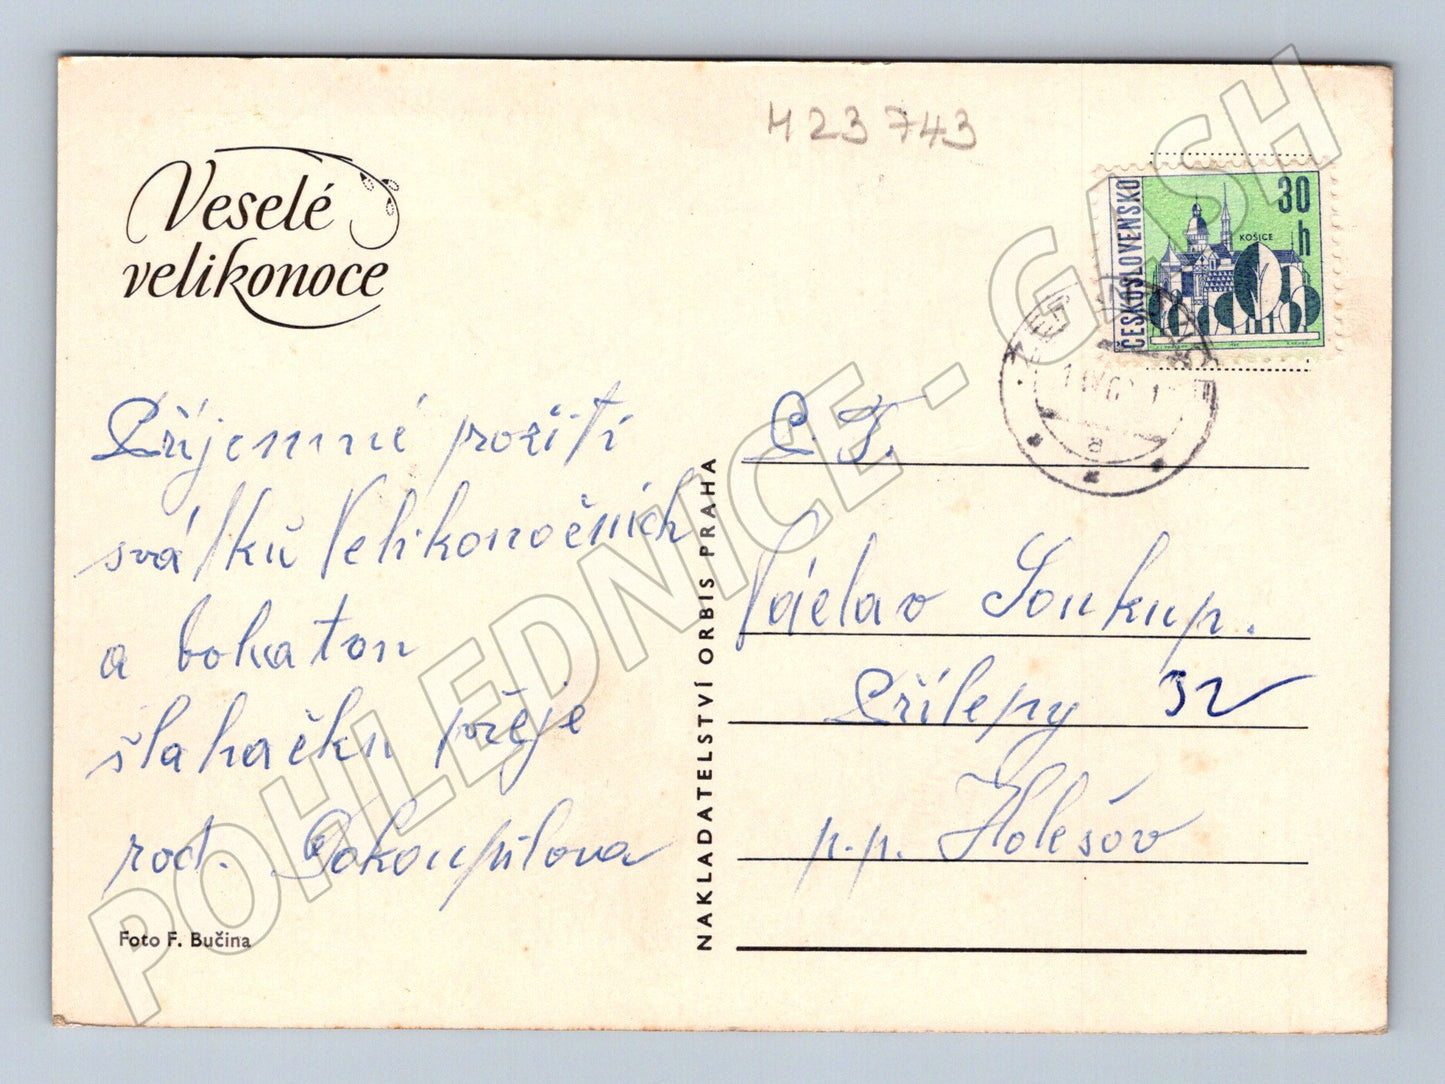 H23743
Veselé
velikonoce
ČESKOSLOVENSKO
30
h
KOŠICE
Příjemné prožití
svátků Velikonočních
a bohatou
šlahačku přeje
rod. Dokoupilova
Foto F. Bučina
NAKLADATELSTVÍ ORBIS PRAHA
C. T.
Václav Soukup.
Přílepy 32
p.p. Holešov
a
POHLEDNICE - GASH